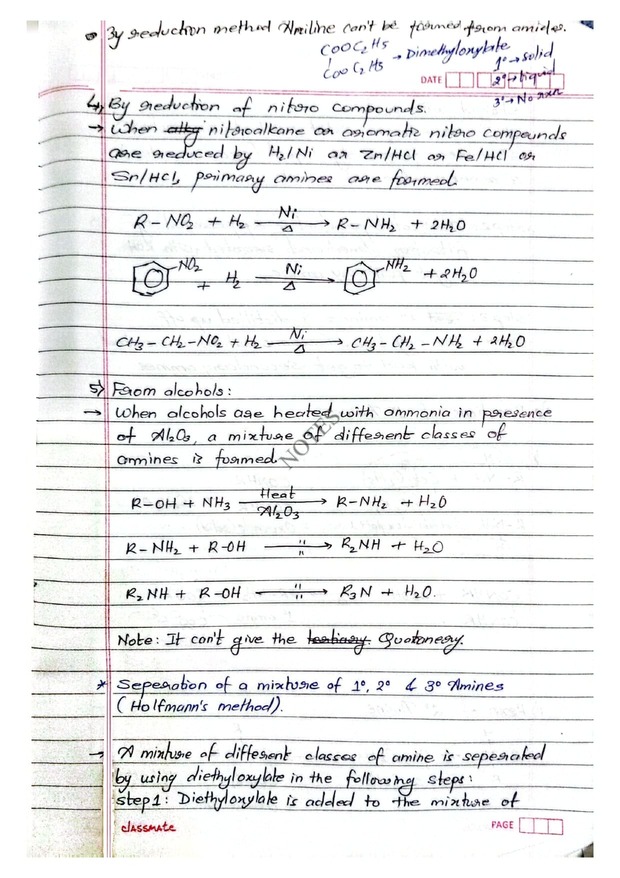 • By reduction method Aniline can't be formed from amides.
COOC2H5
|
COOC2H5 → Dimethyloxylate
1° → solid
2° → liquid
3° → No rxn
DATE
4) By reduction of nitro compounds.
→ When alkyl nitroalkane or aromatic nitro compounds
are reduced by H2/Ni or Zn/HCl or Fe/HCl or
Sn/HCl, primary amines are formed.
R-NO2 + H2 —Ni/Δ→ R-NH2 + 2H2O
NO2 + H2 —Ni/Δ→ NH2 + 2H2O
CH3-CH2-NO2 + H2 —Ni/Δ→ CH3-CH2-NH2 + 2H2O
5) From alcohols:
→ When alcohols are heated with ammonia in presence
of Al2O3, a mixture of different classes of
amines is formed.
NOTES
R-OH + NH3 —Heat/Al2O3→ R-NH2 + H2O
R-NH2 + R-OH —"/"→ R2NH + H2O
R2NH + R-OH —"/"→ R3N + H2O.
Note: It can't give the tertiary Quotonery.
* Seperation of a mixture of 1°, 2° & 3° Amines
(Halfmann's method).
→ A mixture of different classes of amine is seperated
by using diethyloxylate in the following steps:
step1: Diethyloxylate is added to the mixture of
classmate
PAGE